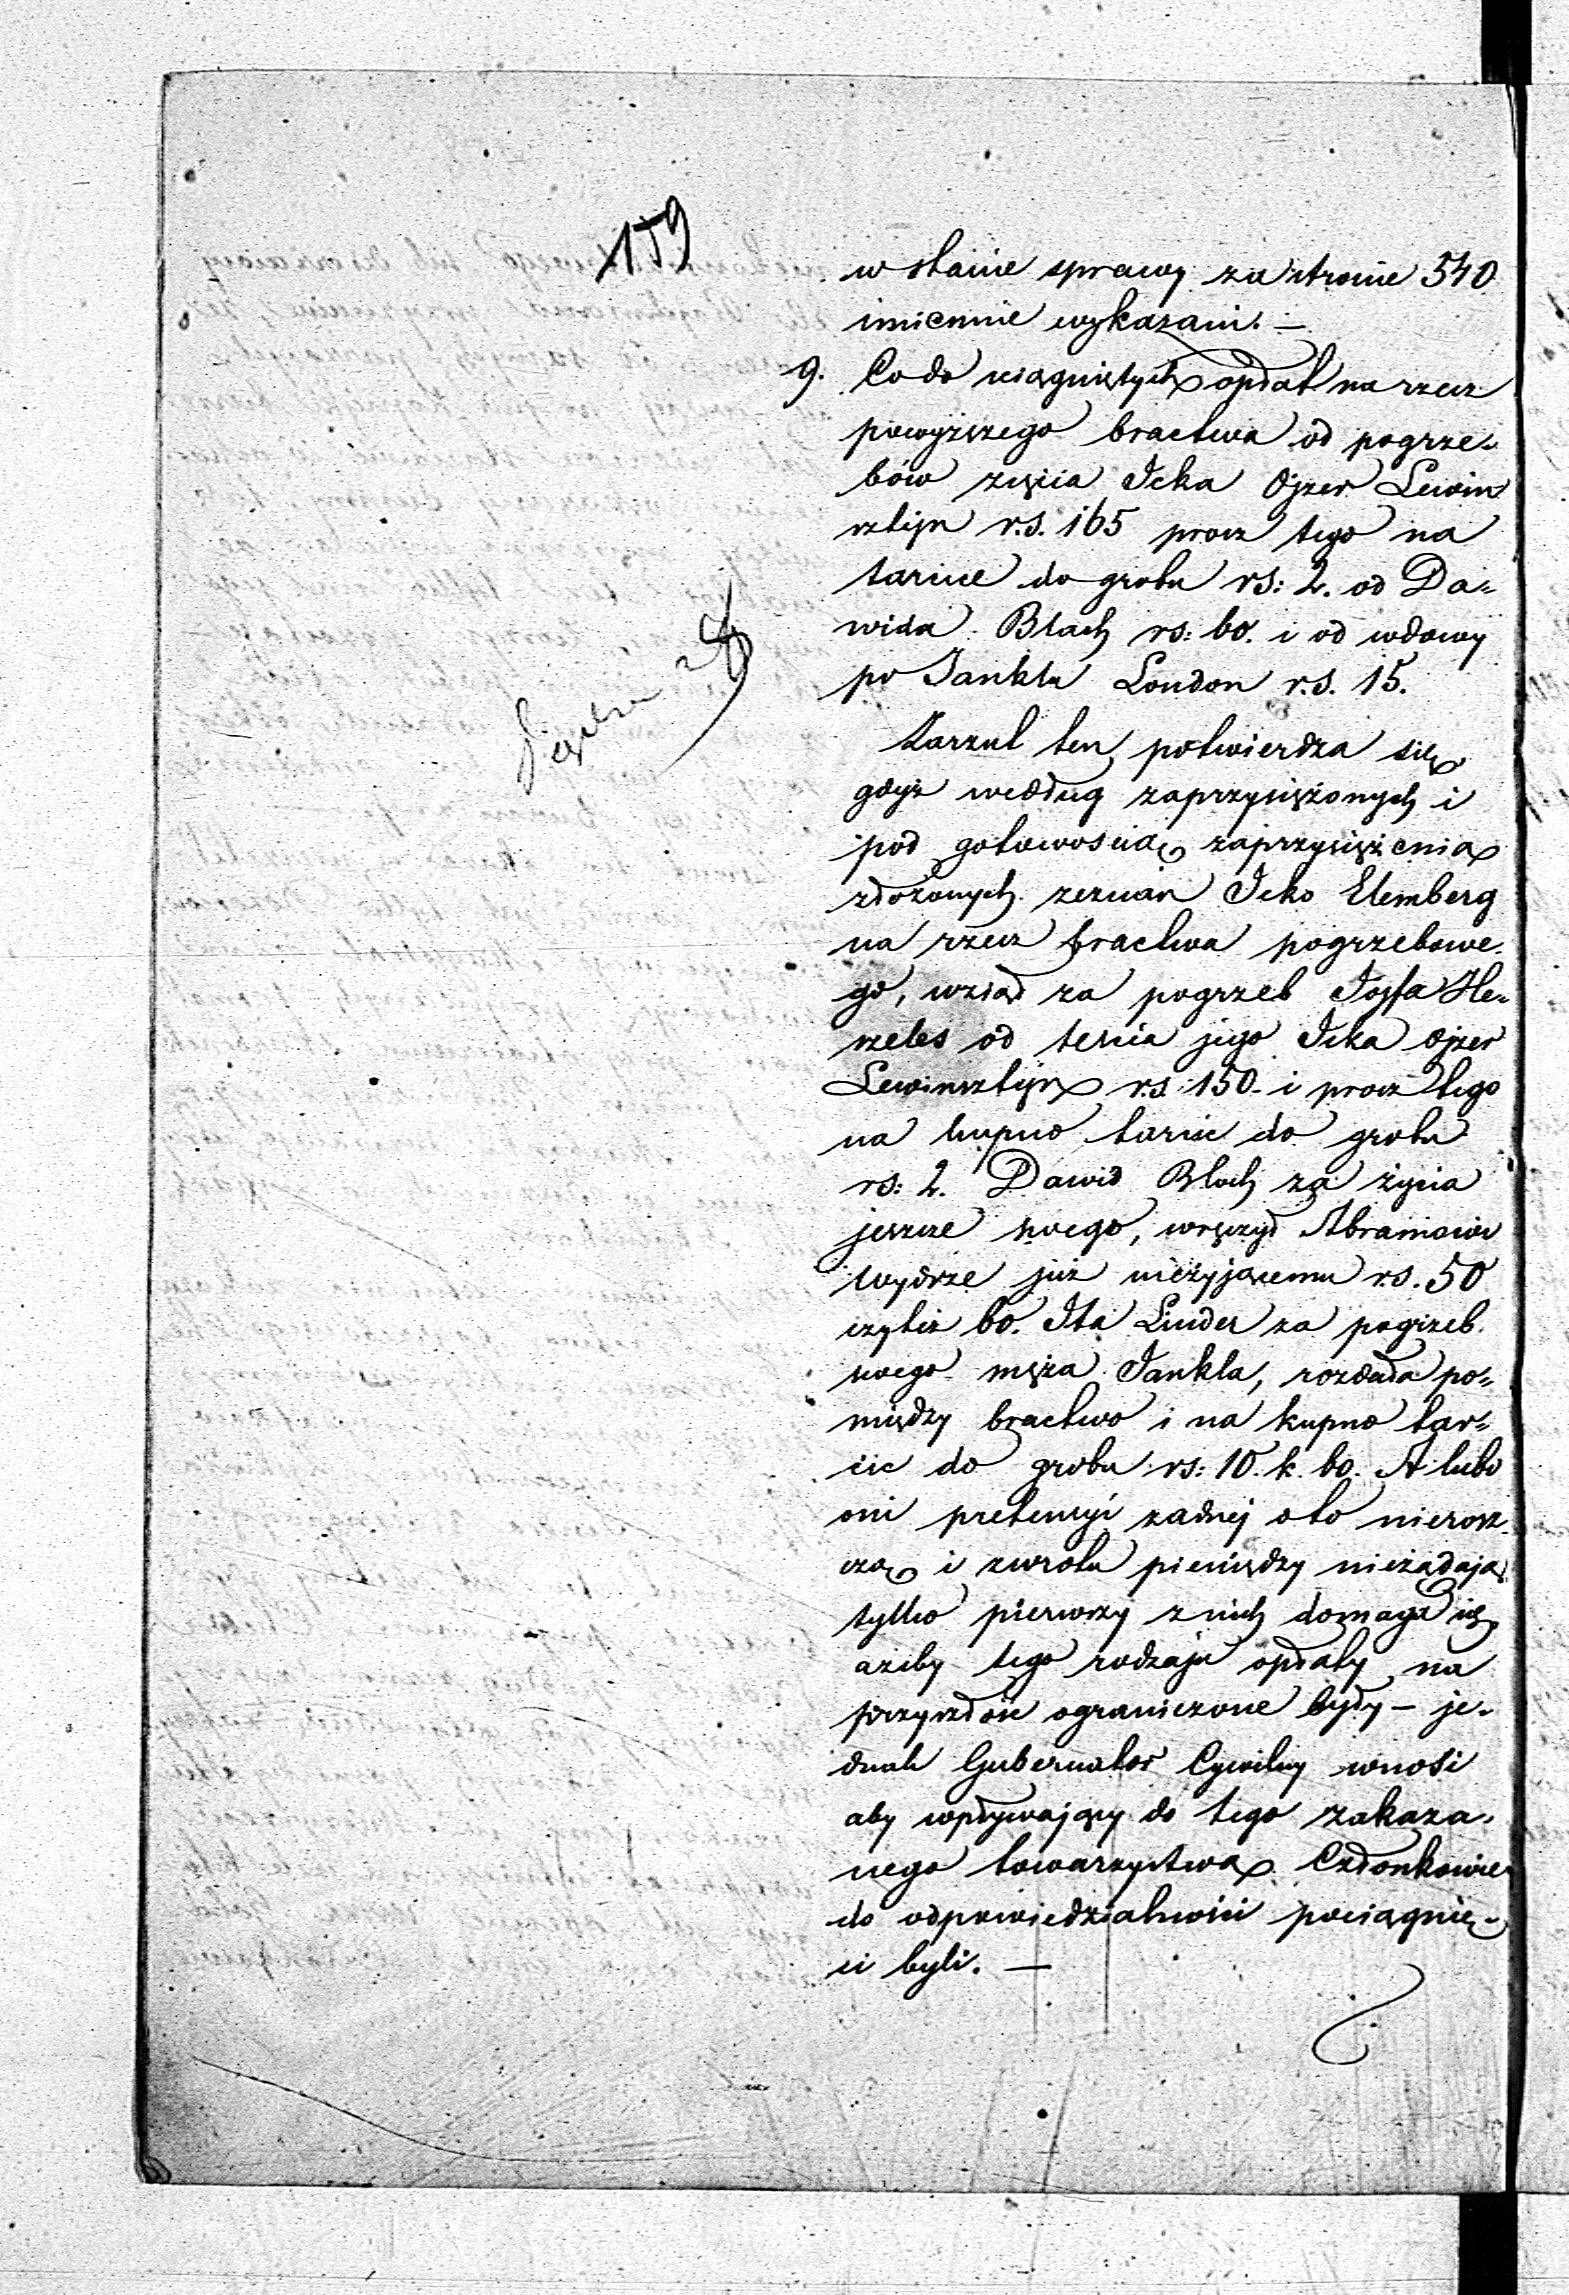 159
w stanie sprawy za stronie 540
imiennie wykazani. —
9. Co do ściągniętych opłat na rzecz
powyższego bractwa od pogrze-
bów zięcia Icka Ojzer Lewin
sztejn r.s. 165 procz tego na
tarcice do grobu rs: 2. od Da-
wida Bloch rs: 60. i od wdowy
po Janklu London r.s. 15.
Zarzut ten potwierdza się
gdyż według zaprzysiężonych i
pod gotowością zaprzysiężenia
złożonych zeznań Icko Elemberg
na rzecz bractwa pogrzebowe-
go, wziął za pogrzeb Josfa He-
szeles od teścia jego Icka Ojzer
Lewinsztejn r.s. 150. i procz tego
na kupno tarcic do grobu
rs: 2. Dawid Bloch za życia
jeszcze swego, wręczył Abramowi
Wydrze już nieżyjącemu r.s. 50
czyli też 60. Ita Linder za pogrzeb
swego męża Jankla, rozdała po-
między bractwo i na kupno tar-
cic do grobu rs: 10. k. 60. A lubo
oni pretensyi żadnej oto nierosz-
czą i zwrotu pieniędzy nieżądają
tylko pierwszy z nich domaga się
ażeby tego rodzaju opłaty na
przyszłość ograniczone były – je-
dnak Gubernator Cywilny wnosi
aby wpływający do tego zakaza-
nego towarzystwa Członkowie
do odpowiedzialności pociągnię-
ci byli. —